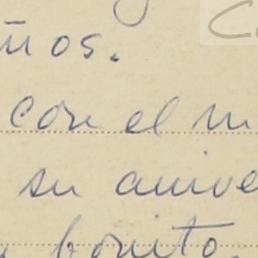 ños.
con el m
su anive
bonito